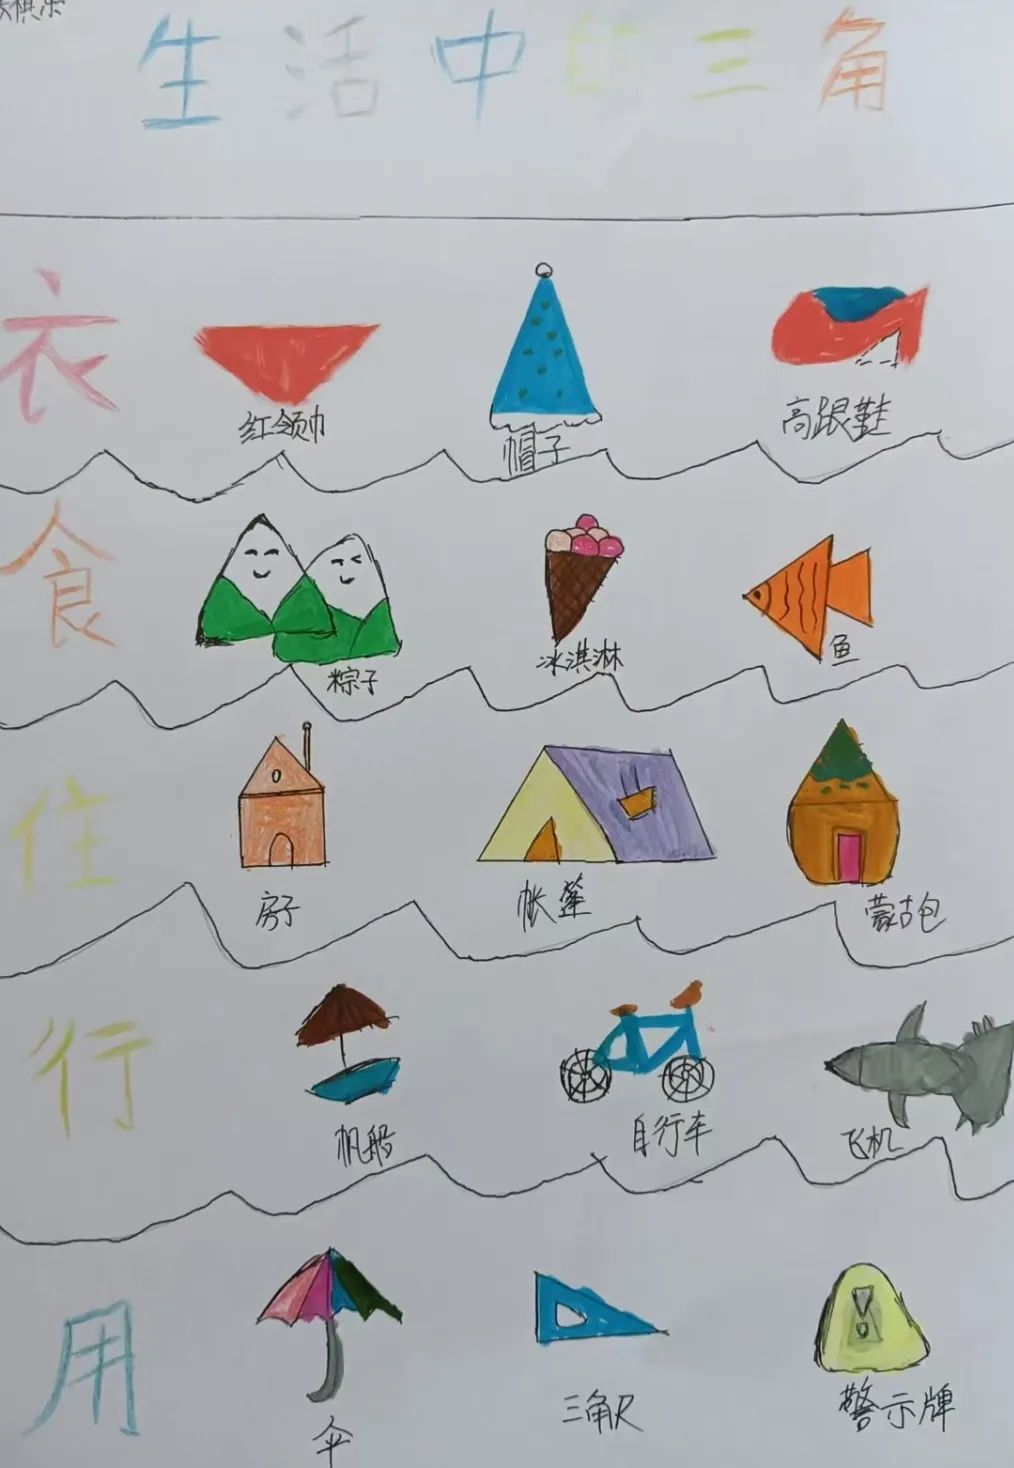 生活中的三角
衣
红领巾 帽子 高跟鞋
食
粽子 冰淇淋 鱼
住
房子 帐篷 蒙古包
行
帆船 自行车 飞机
用
伞 三角尺 警示牌